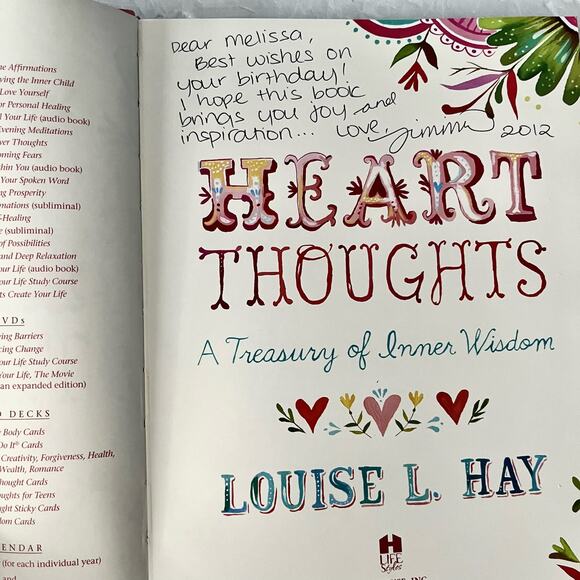 ne Affirmations
ying the Inner Child
Love Yourself
r Personal Healing
l Your Life (audio book)
Evening Meditations
ver Thoughts
oming Fears
ithin You (audio book)
Your Spoken Word
ng Prosperity
mations (subliminal)
-Healing
e (subliminal)
of Possibilities
and Deep Relaxation
our Life (audio book)
our Life Study Course
ts Create Your Life
VDs
ving Barriers
cing Change
our Life Study Course
our Life, The Movie
an expanded edition)
O DECKS
y Body Cards
Do It® Cards
Creativity, Forgiveness, Health,
Wealth, Romance
Thought Cards
oughts for Teens
ght Sticky Cards
dom Cards
ENDAR
(for each individual year)
and
Dear Melissa,
Best wishes on
your birthday!
I hope this book
brings you joy and
inspiration... Love, 2012
HEART
THOUGHTS
A Treasury of Inner Wisdom
LOUISE L. HAY
H
LIFE
Styles